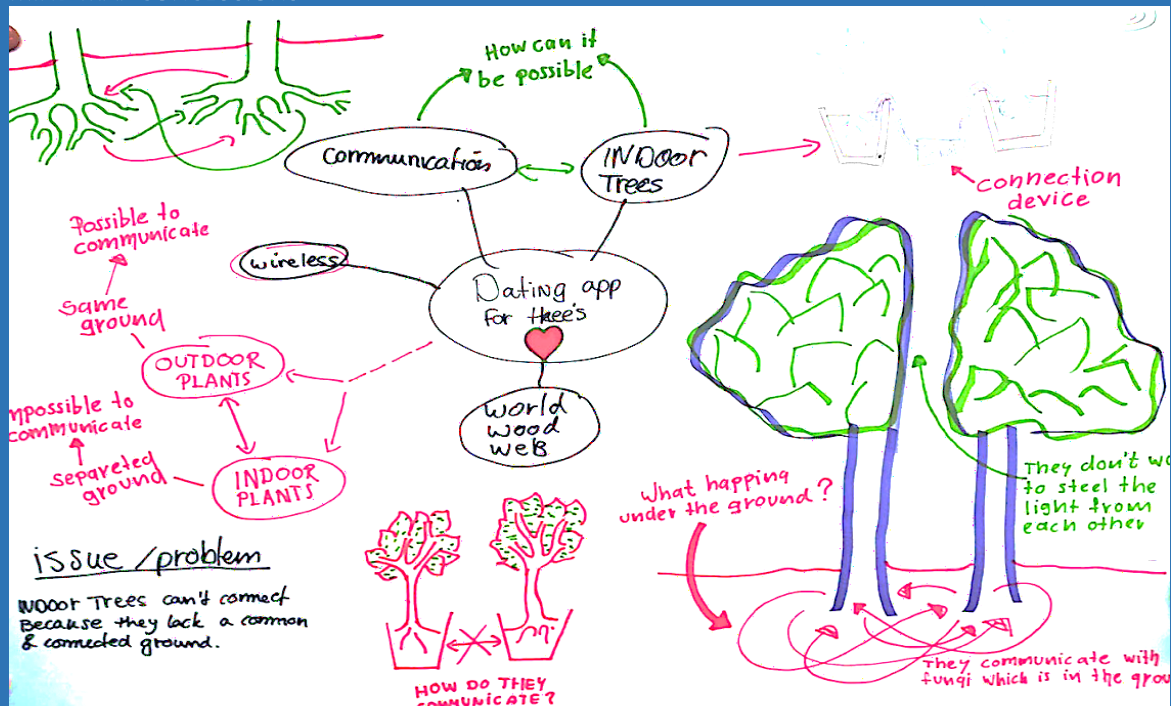 How can it
be possible
communication
INDoor
TREES
connection
device
Possible to
communicate
wireless
Dating app
for thee's
Same
ground
OUTDOOR
PLANTS
mpossible to
communicate
separeted
ground
INDOOR
PLANTS
world
wood
weB
What happing
under the ground?
They don't
to steel the
light from
each other
issue/problem
INDOOr Trees can't connect
Because they lack a common
& connected ground.
HOW DO THEY
COMMUNICATE?
They communicate with
fungi which is in the